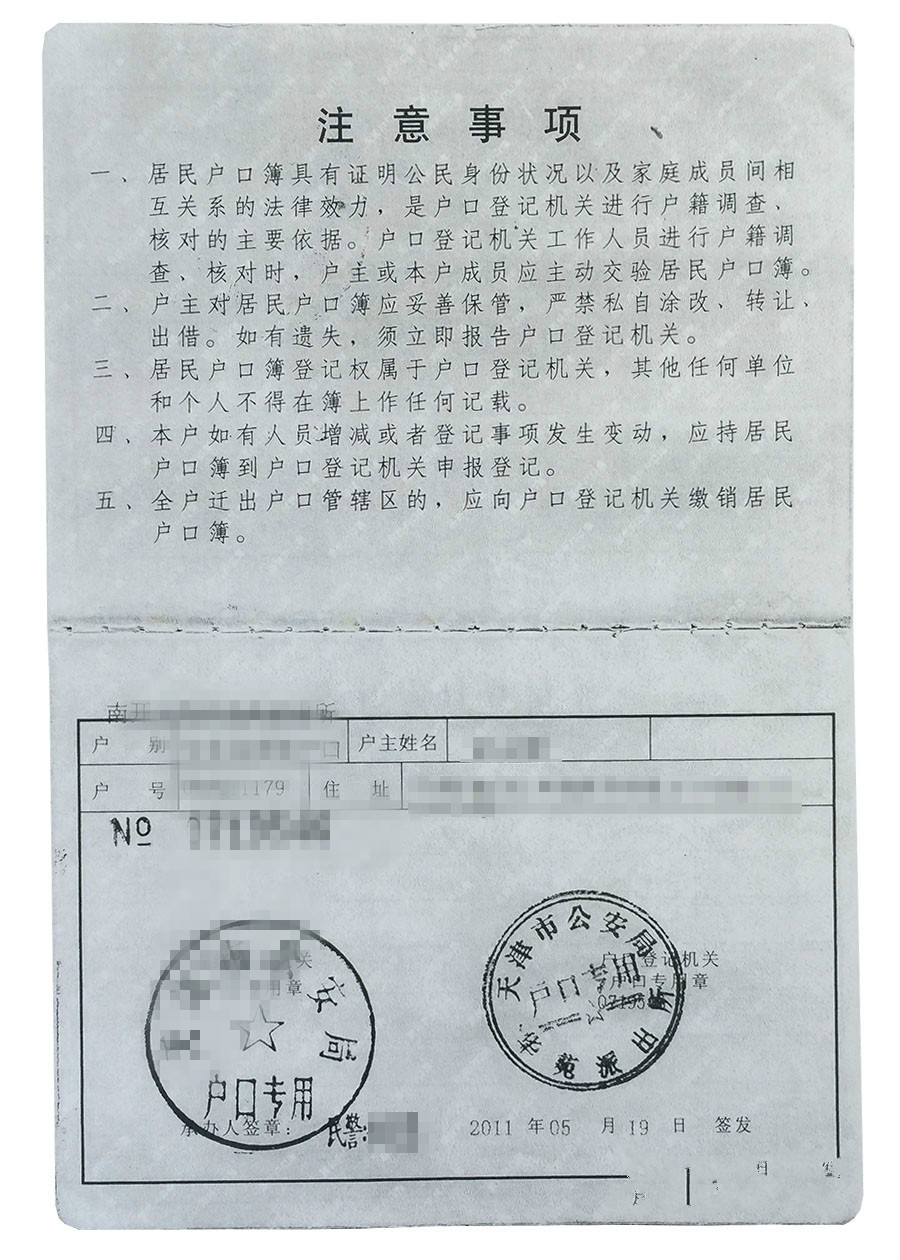 注意事项
一、居民户口簿具有证明公民身份状况以及家庭成员间相
互关系的法律效力，是户口登记机关进行户籍调查、
核对的主要依据。户口登记机关工作人员进行户籍调
查、核对时，户主或本户成员应主动交验居民户口簿。
二、户主对居民户口簿应妥善保管，严禁私自涂改、转让、
出借。如有遗失，须立即报告户口登记机关。
三、居民户口簿登记权属于户口登记机关，其他任何单位
和个人不得在簿上作任何记载。
四、本户如有人员增减或者登记事项发生变动，应持居民
户口簿到户口登记机关申报登记。
五、全户迁出户口管辖区的，应向户口登记机关缴销居民
户口簿。
南开 所
户别 口 户主姓名
户号 1179 住址
Nº
天津市公安局
户口专用
苑派出所
户口登记机关
户口专用章
关
用章
安局
户口专用
承办人签章： 民警：
2011 年 05 月 19 日 签发
户 日